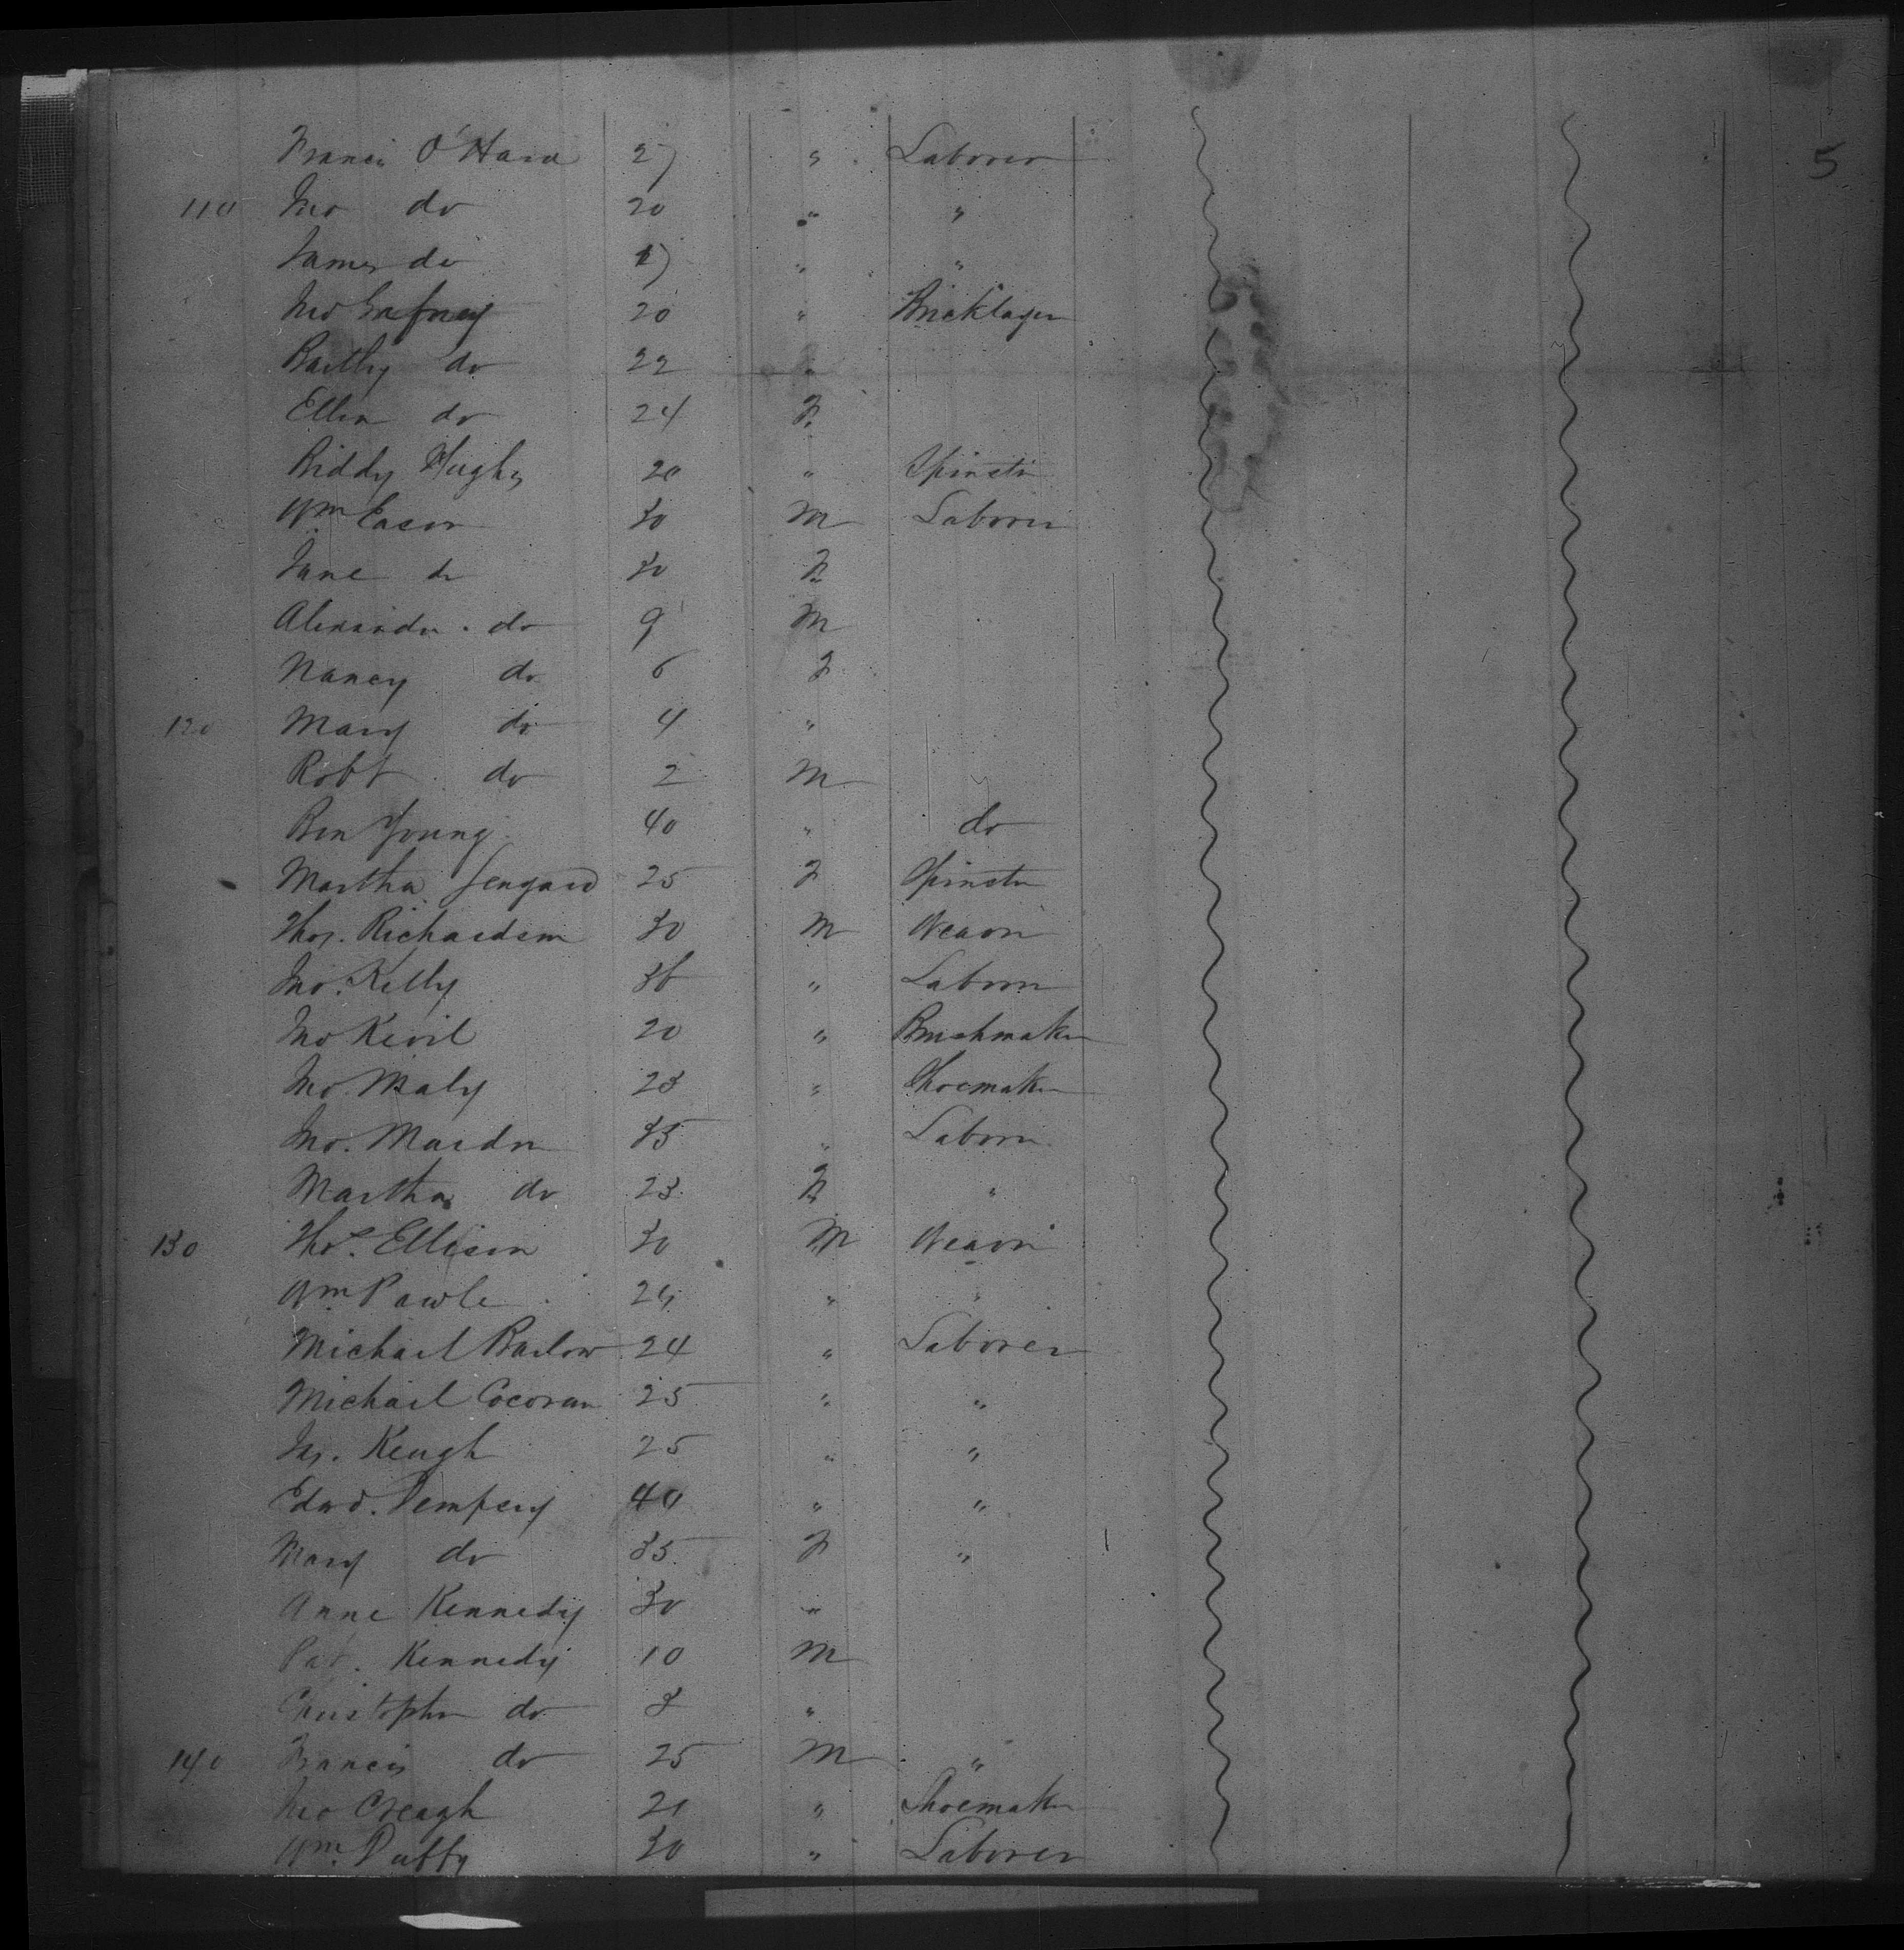 5
Francis O'Hara 27 " Laborer
110 Jno do 20 " "
James do 17 " "
Jno Gafney 20 " Bricklayer
Barthy do 22 "
Ellen do 24 F
Biddy Hughs 20 " Spinster
Wm Eason 30 M Laborer
Jane do 30 F
Alexander do 9 M
Nancy do 6 F
120 Mary do 4 "
Robt do 2 M
Ben Young 40 " do
Martha 25 F Spinster
Thos. Richardson 30 M Weaver
Jno. Kelly 36 " Laborer
Jno Kevil 20 " Brushmaker
Jno Maly 23 " Shoemaker
Jno. Marden 35 " Laborer
Martha do 23 F "
130 Thos. Ellison 30 M Weaver
Wm Pawle 24 " "
Michael Barlow 24 " Laborer
Michael Cocoran 25 " "
Jas. Keugh 25 " "
Edwd. Dempsey 40 " "
Mary do 35 F "
Anne Kennedy 30 "
Pat. Kennedy 10 M
Christopher do 8 "
140 Francis do 25 M "
Jno Creagh 21 " Shoemaker
Wm Duffy 30 " Laborer